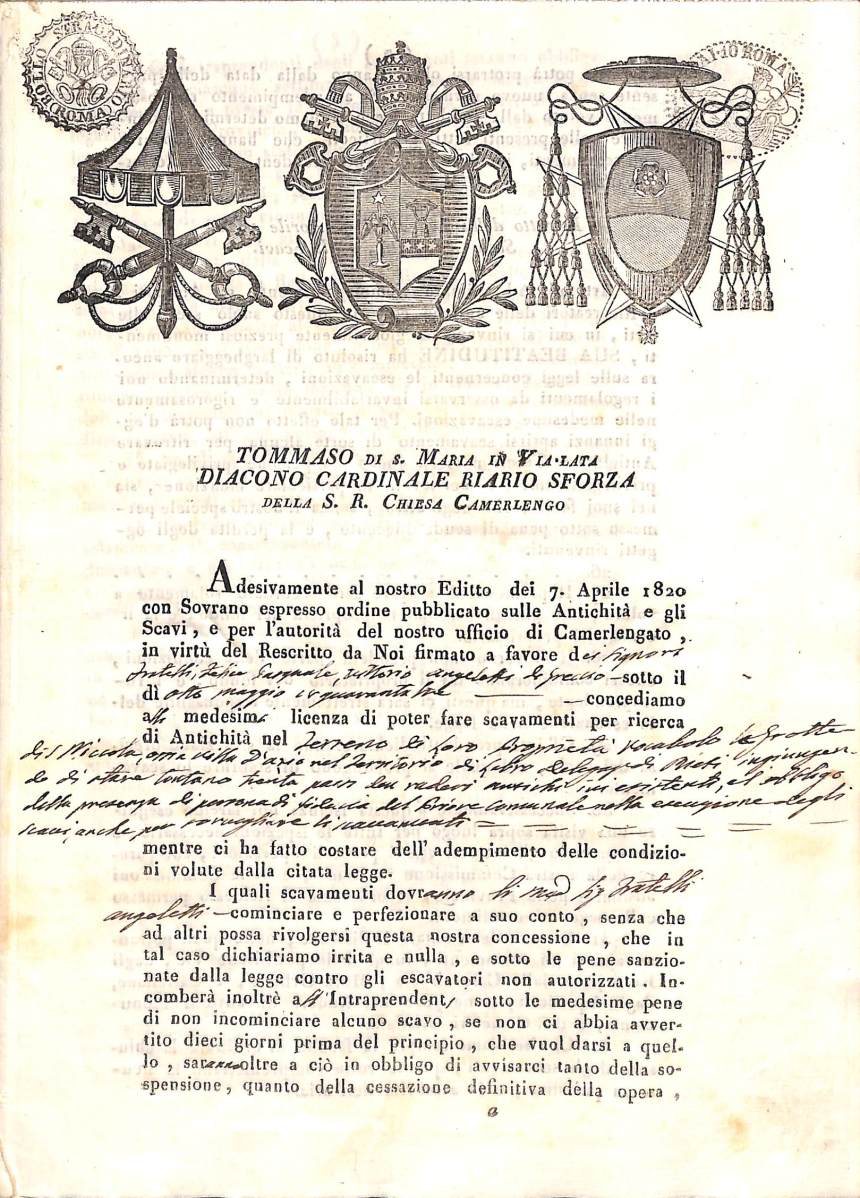 BOLLO STRAORDINARIO
(ROMA)
BAI·10 ROMA
TOMMASO DI S. MARIA IN VIA·LATA
DIACONO CARDINALE RIARIO SFORZA
DELLA S. R. CHIESA CAMERLENGO
Adesivamente al nostro Editto dei 7. Aprile 1820
con Sovrano espresso ordine pubblicato sulle Antichità e gli
Scavi, e per l'autorità del nostro ufficio di Camerlengato,
in virtù del Rescritto da Noi firmato a favore dei Signori
Fratelli, Felice Pasquale, Vittorio Angeletti di Greccio —sotto il
dì otto maggio —concediamo
alli medesimi licenza di poter fare scavamenti per ricerca
di Antichità nel Terreno di loro Proprietà vocabolo le Grotte
di S Niccola, ossia villa d'Asio nel Territorio di Labro Delegne di Rieti, ingiungen-
do di stare lontano trenta passi dai ruderi antichi ivi esistenti, el obbligo
della presenza di persona di fiducia del Priore Comunale nella esecuzione degli
scavi, anche per sorvegliare li scavamenti = = = = =
mentre ci ha fatto costare dell' adempimento delle condizio-
ni volute dalla citata legge.
I quali scavamenti dovranno li med Sig Fratelli
Angeletti —cominciare e perfezionare a suo conto, senza che
ad altri possa rivolgersi questa nostra concessione, che in
tal caso dichiariamo irrita e nulla, e sotto le pene sanzio-
nate dalla legge contro gli escavatori non autorizzati. In-
comberà inoltrè all'Intraprendenti sotto le medesime pene
di non incominciare alcuno scavo, se non ci abbia avver-
tito dieci giorni prima del principio, che vuol darsi a quel-
lo, saranno oltre a ciò in obbligo di avvisarci tanto della so-
spensione, quanto della cessazione definitiva della opera,
a